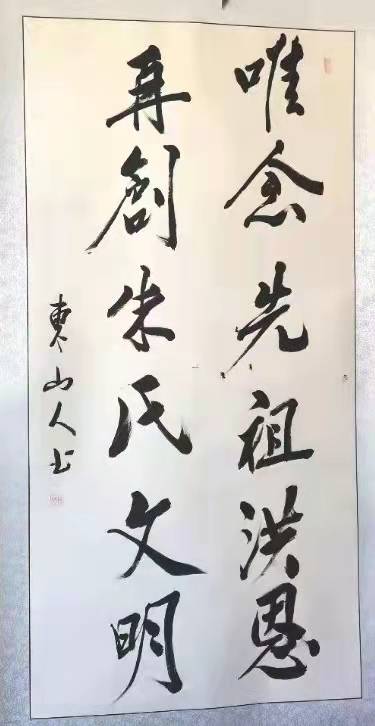 唯念先祖洪恩
再創朱氏文明
東山人书